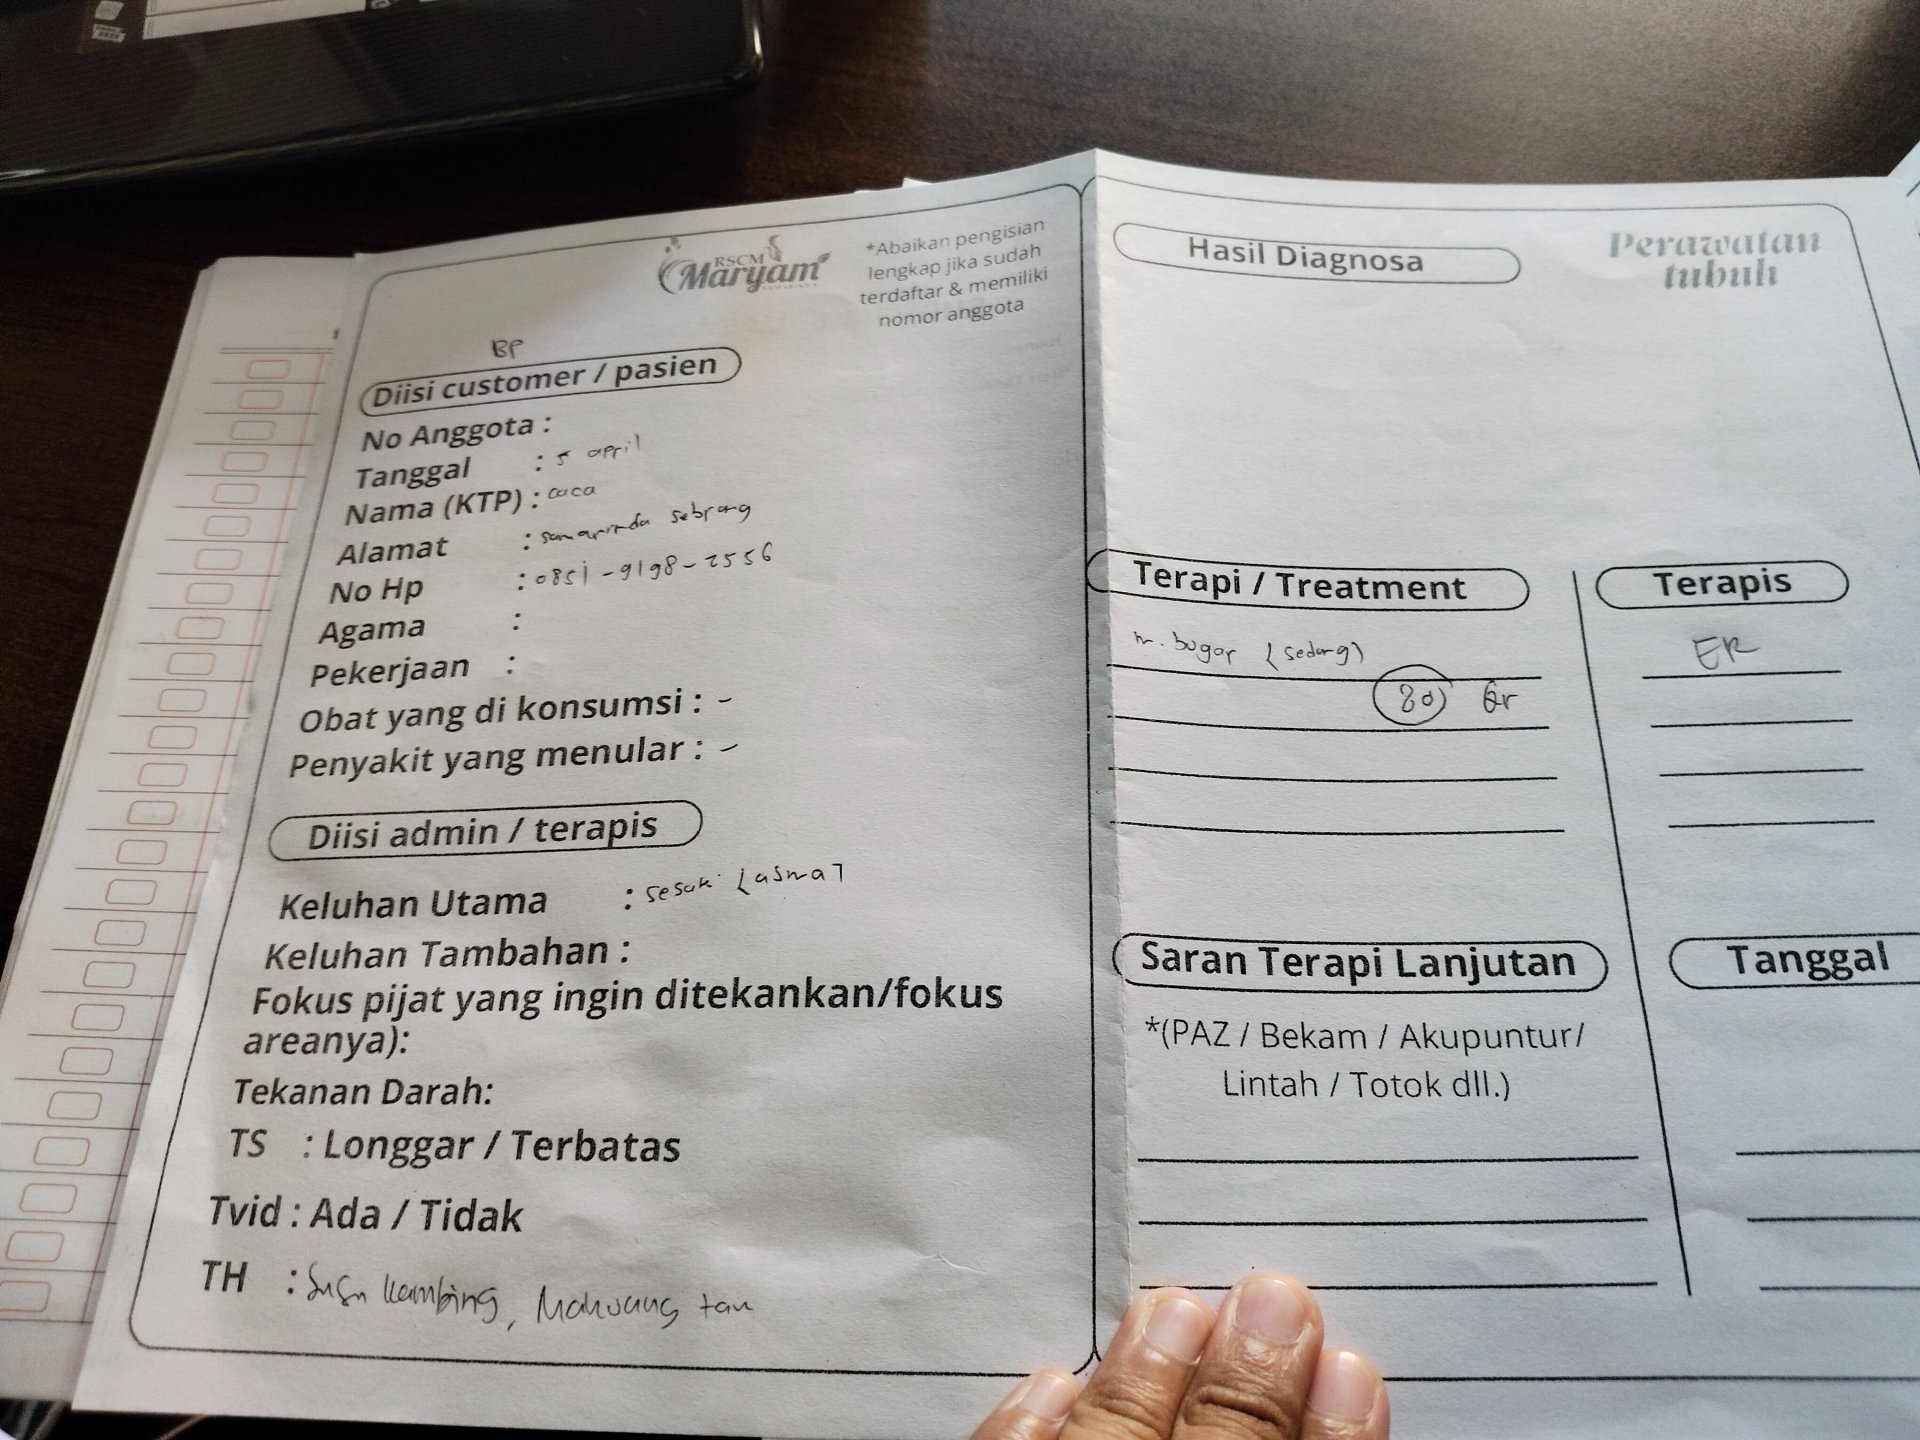 RSCM
Maryam
*Abaikan pengisian
lengkap jika sudah
terdaftar & memiliki
nomor anggota
BP
Diisi customer / pasien
No Anggota :
Tanggal : 5 april
Nama (KTP) : caca
Alamat : samarinda sebrang
No Hp : 0851-9198-2556
Agama :
Pekerjaan :
Obat yang di konsumsi : -
Penyakit yang menular : -
Diisi admin / terapis
Keluhan Utama : sesak (asma)
Keluhan Tambahan :
Fokus pijat yang ingin ditekankan/fokus
areanya):
Tekanan Darah:
TS : Longgar / Terbatas
Tvid : Ada / Tidak
TH : Susu kambing,
Hasil Diagnosa
Perawatan
tubuh
Terapi / Treatment
m. bugar (sedang)
80 Qr
Terapis
ER
Saran Terapi Lanjutan
*(PAZ / Bekam / Akupuntur/
Lintah / Totok dll.)
Tanggal